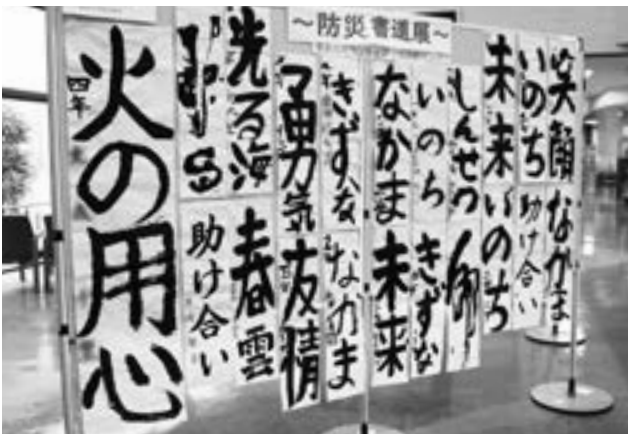 ～防災書道展～
笑顔
なかま
いのち
助け合い
未来
いのち
しんせつ
いのち
きずな
なかま
未来
きずな
なかま
勇気
友情
光る海
春雲
助け合い
火の用心
四年